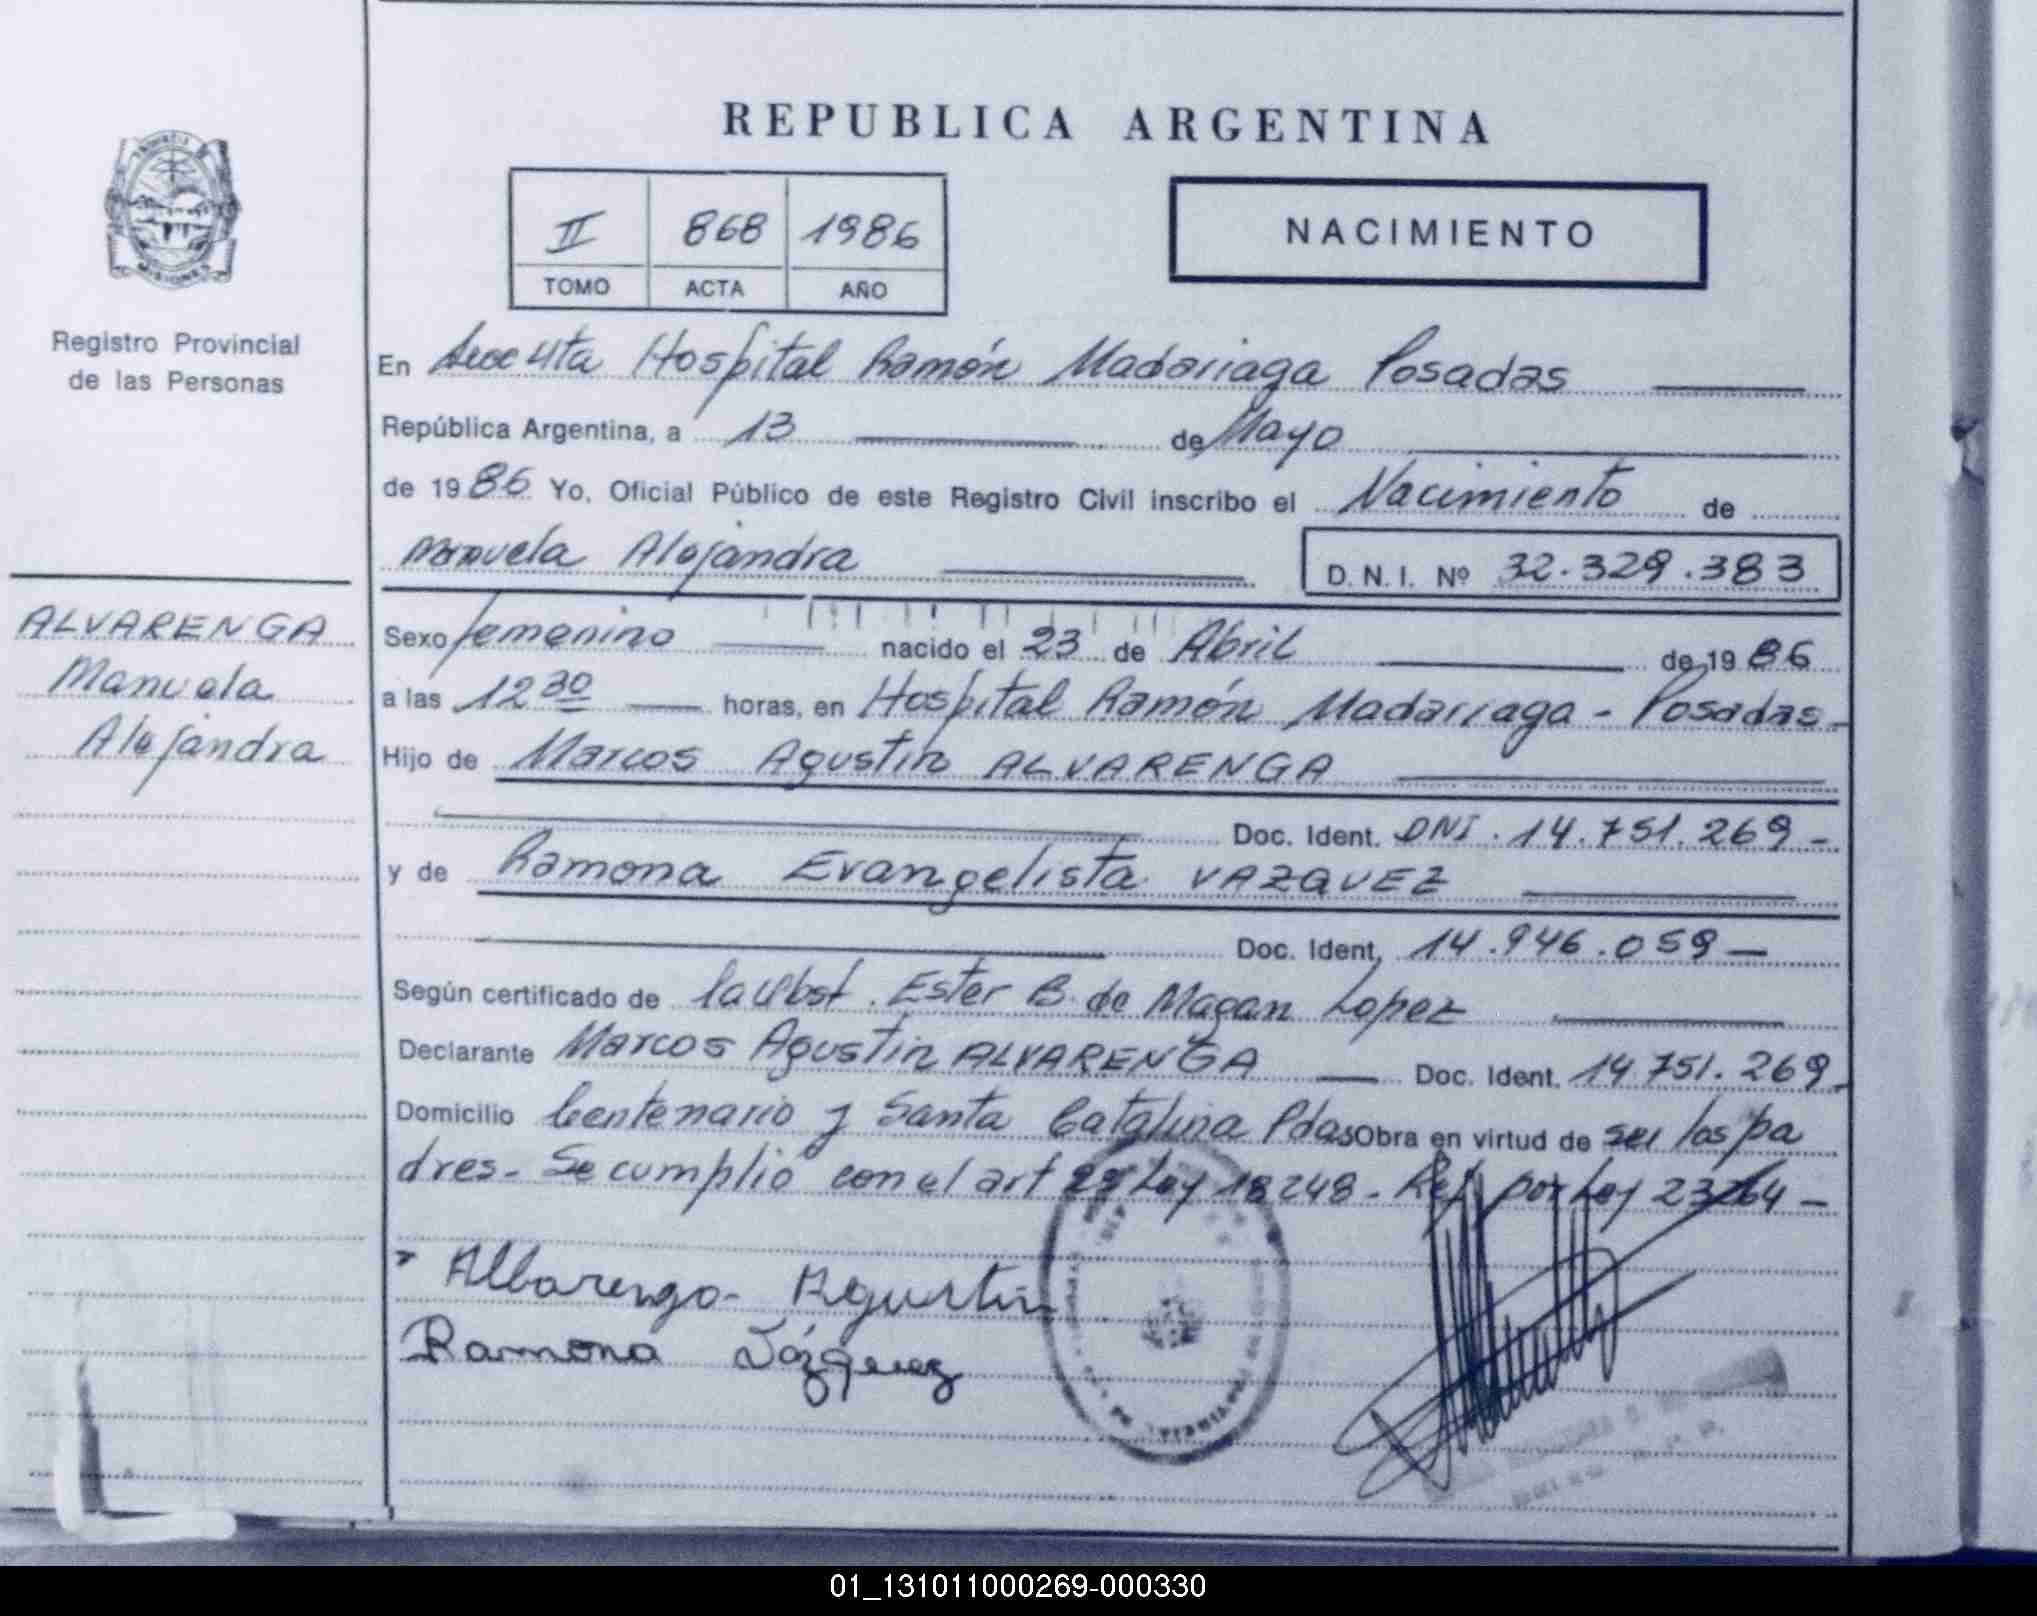 REPUBLICA ARGENTINA
MISIONES
II 868 1986
TOMO ACTA AÑO
NACIMIENTO
Registro Provincial
de las Personas
ALVARENGA
Manuela
Alejandra
En Hospital Ramón Madariaga Posadas
República Argentina, a 13 de Mayo
de 1986 Yo, Oficial Público de este Registro Civil inscribo el Nacimiento de
Manuela Alejandra D. N. I. Nº 32.329.383
Sexo femenino nacido el 23 de Abril de 1986
a las 12 30 horas, en Hospital Ramón Madariaga - Posadas -
Hijo de Marcos Agustín ALVARENGA
Doc. Ident. DNI. 14.751.269 -
y de Ramona Evangelista VAZQUEZ
Doc. Ident. 14.946.059 -
Según certificado de la Obst. Ester B. de Magan Lopez
Declarante Marcos Agustín ALVARENGA Doc. Ident. 14.751.269 -
Domicilio Centenario y Santa Catalina Pdas Obra en virtud de ser los pa
dres - Se cumplió con el art Ley 18248 - Ref por Ley 23264 -
Albarengo - Agustin
Ramona Vázquez
01_131011000269-000330